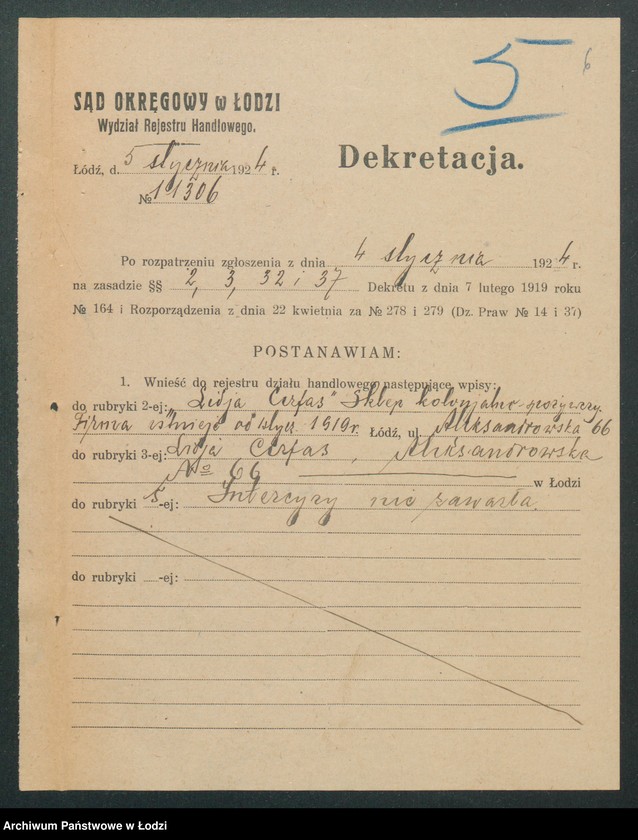 5
6
SĄD OKRĘGOWY w ŁODZI
Wydział Rejestru Handlowego.
Łódź, d. 5 stycznia 1924 r.
№ 11306
Dekretacja.
Po rozpatrzeniu zgłoszenia z dnia 4 stycznia 1924 r.
na zasadzie §§ 2, 3, 32 i 37 Dekretu z dnia 7 lutego 1919 roku
№ 164 i Rozporządzenia z dnia 22 kwietnia za № 278 i 279 (Dz. Praw № 14 i 37)
POSTANAWIAM:
1. Wnieść do rejestru działu handlowego następujące wpisy:
do rubryki 2-ej: „Lidja Cerfas" Sklep kolonjalno-spożywczy.
Firma istnieje od stycz. 1919 r. Łódź, ul. Aleksandrowska 66
do rubryki 3-ej: Lidja Cerfas, Aleksandrowska
№ 66 w Łodzi
do rubryki 5-ej: Intercyzy nie zawarła.
do rubryki -ej:
Archiwum Państwowe w Łodzi